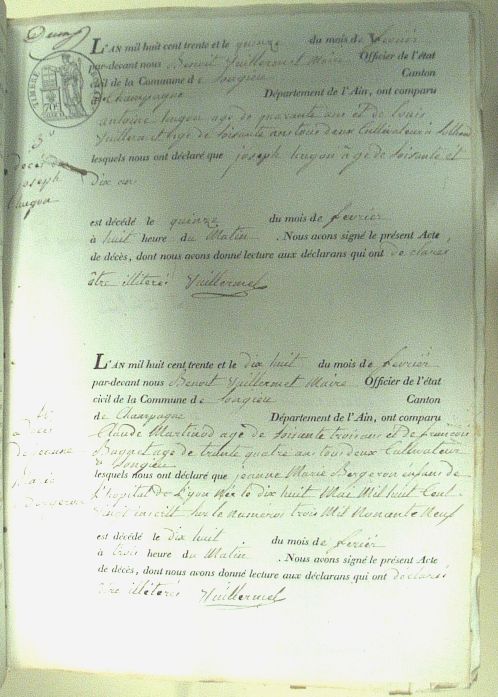 L'AN mil huit cent trente et le quinze du mois de fevrier
par-devant nous Benoit Vuillermet Maire Officier de l'état
civil de la Commune de Songieu Canton
de Champagne Département de l'Ain, ont comparu
antoine hugon age de quarante ans et de louis
age de soisante ans tous deux Cultivateur à
lesquels nous ont déclaré que joseph hugon âge de soisante et
dix ans
3e
deces de
joseph
hugon
est décédé le quinze du mois de fevrier
à huit heure du Matin . Nous avons signé le présent Acte
de décès, dont nous avons donné lecture aux déclarans qui ont declarés
être illiterés Vuillermet
L'AN mil huit cent trente et le dix huit du mois de fevrier
par-devant nous Benoit Vuillermet Maire Officier de l'état
civil de la Commune de Songieu Canton
de Champagne Département de l'Ain, ont comparu
Claude Martinod age de soisante trois ans et de francois
age de trante quatre ans tous deux Cultivateur
à Songieu
lesquels nous ont déclaré que jeanne Marie Bergeron enfans de
l'hopital de Lyon née le dix huit Mai Mil huit Cent
inscrit sur le numeros trois Mil Nonante Neuf
4e
deces
de jeanne
Marie
Bergeron
est décédé le dix huit du mois de ferier
à trois heure du Matin . Nous avons signé le présent Acte
de décès, dont nous avons donné lecture aux déclarans qui ont declarés
être illéterés Vuillermet